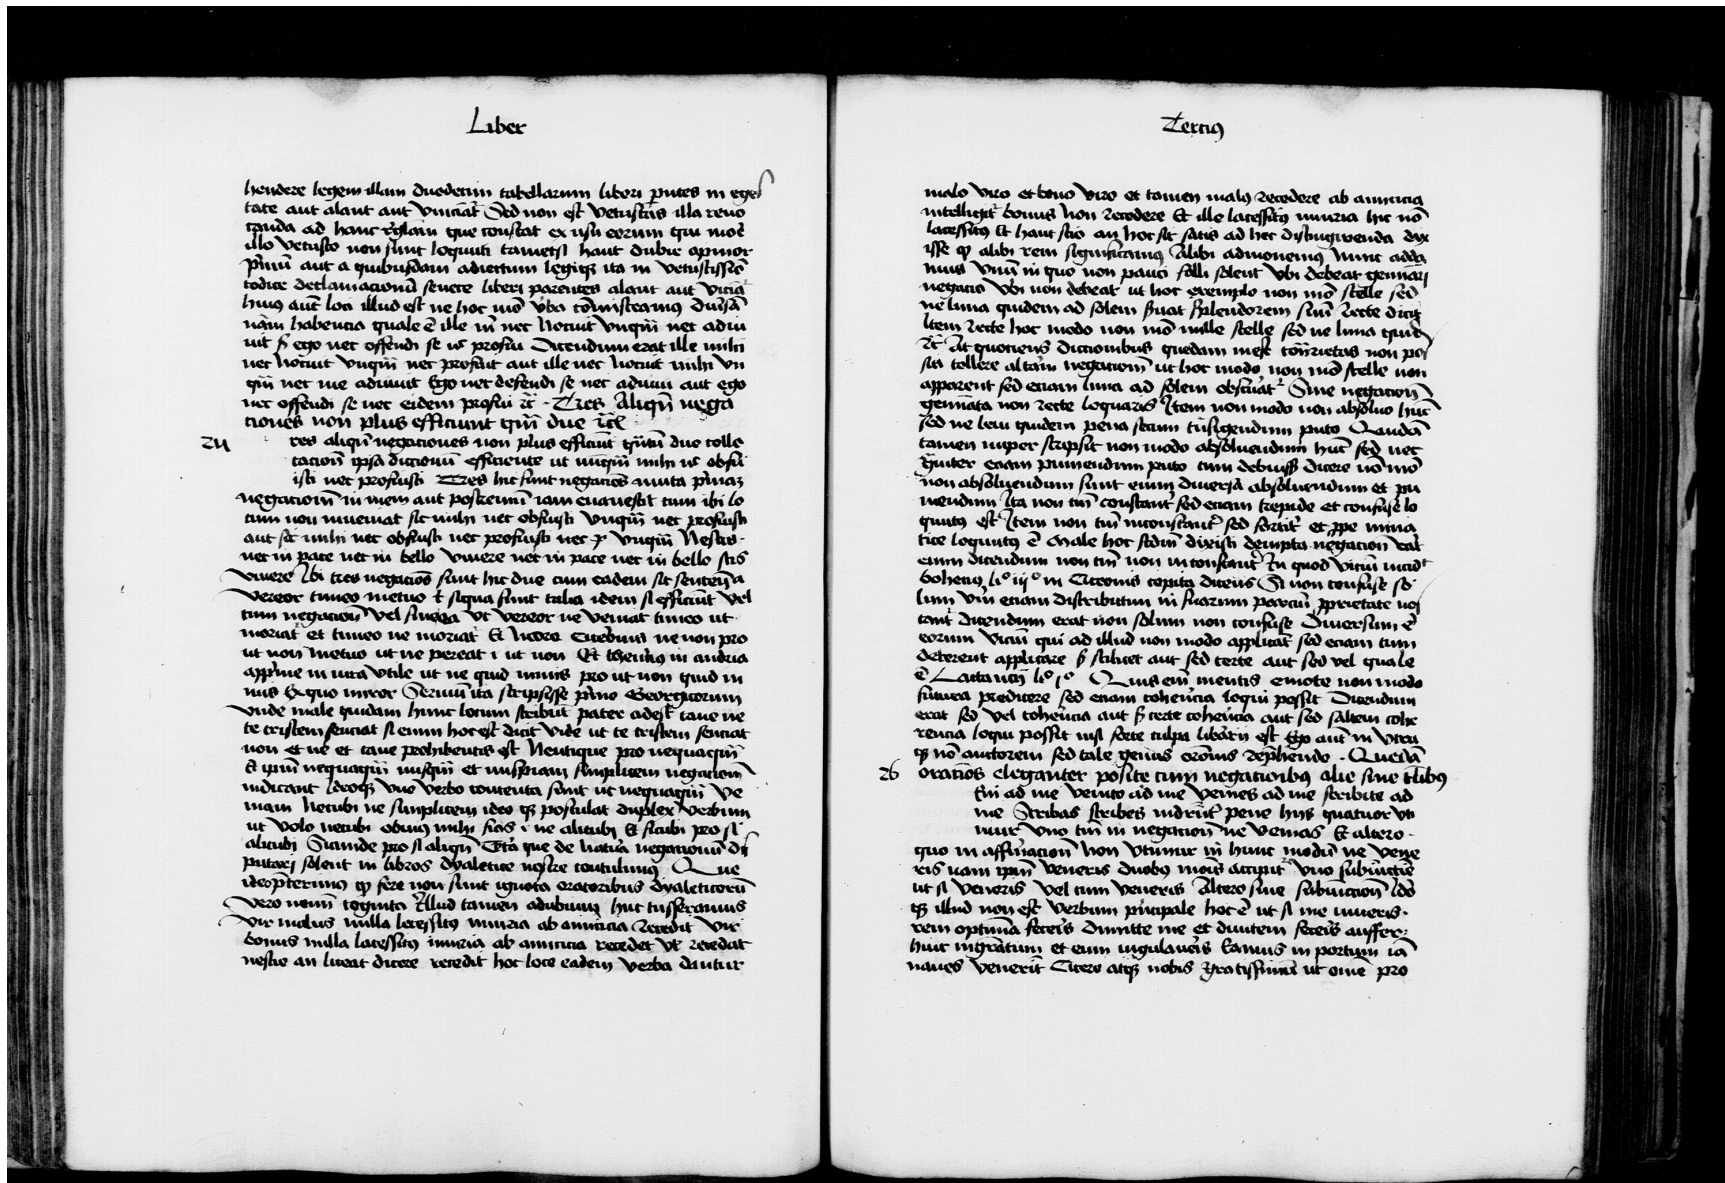 Liber
hendere legem illam duodecim tabellarum liberi pntes in eges
tate aut alant aut vinciãt Sed non est vetustas illa reuo
canda ad hanc rglam que constat ex usu eorum qui more
illo vetusto non sunt loquuti tametsi haut dubie opinor
primũ aut a quibusdam adiectum legiqȝ ita in vetustissio
codice declamacionũ seuere liberi parentes alant aut vincia
huius aut loci illud est ne hoc mõ vba cõmisceamus diusã
nãm habencia quale ẽ ille m nec nocuit unqm nec adiu
uit ego nec offendi se nec profui Dicendum erat ille mihi
nec nocuit unqm nec profuit aut ille nec nocuit mihi un
qm nec me adiuuit Ego nec defendi se nec adiuui aut ego
nec offendi se nec eidem profui Tres Aliqn nega
ciones non plus efficiunt qm due
res aliqn negaciones non plus efficiũt due colle
cacionẽ ipsa diccionũ efficiente ut unqm mihi nec obfu
isti nec profuisti Tres hic sunt negaciões muta primaȝ
negacionẽ in mem aut postremũ iam euanescit cum ibi lo
cum non inueniat sic mihi nec obfuisti unqm nec profuisti
aut sic mihi nec obfuisti nec profuisti nec unqm Nescis
nec in pace nec in bello viuere nec in pace nec in bello scis
viuere Ibi tres negaciões sunt hic due cum eadem sit sentencia
vereor timeo metuo siqua sunt talia idem si efficiũt vel
cum negacionẽ vel sine ea Ut vereor ne veniat timeo ut
moriat et timeo ne moriat Et ne non pro
ut non metuo ut ne pereat i ut non Et therẽcius in andria
apprime in uita utile ut ne quid nimis pro ut non quid ni
mis Ex quo miror Seruiũ ita scripsisse primo Georgicorum
vnde male quidam hunc locum scribũt pater adest caue ne
te tristem senciat si enim hoc est dicit vide ut te tristem senciat
non et ne et caue prohibentis est Neutique pro nequaqm
Et ipm nequaqm nusqm et nuspiam simplicem negacionẽ
indicant Ideoqȝ vno verbo contenta sunt ut nequaqm ve
niam Necubi ne simplicem ideo qȝ postulat duplex verbum
ut volo necubi obuius mihi sias i ne alicubi Et sicubi pro si
alicubi Sicunde pro si aliqn Cetera que de natura negacionũ dis
putari solent in libros dyaletice nostre contulimus Que
ideo pterimus qp fere non sunt ignota oratoribus dyaleticorũ
vero nemĩ cognita Illud tamen adubium huc tusseramus
vir malus nulla lacessitus iniuria ab amicicia recedit vir
bonus nulla lacessitus iniuria ab amicicia recedet vel recedat
nescio an liceat dicere recedit hoc loco eadem verba dantur
Tercius
malo viro et bono viro et tamen malus recedere ab amicicia
intelligit bonus non recedere Et ille lacessitus iniuria hic nõ
lacessitus Et haut scio an hoc sit satis ad hec distinguenda dix
isse qp alibi rem significamus Alibi admonemus Nunc adda
mus vnũ in quo non pauci falli solent vbi debeat geminari
negacio vbi non debeat ut hoc exemplo non mõ stelle sed
ne luna quidem ad solem seruat splendorem suũ recte dicit
Item recte hoc modo non mõ mille stelle sed ne luna quid
At quociens diccionibus quedam inest cõtrietas non po
sis tollere alterã negacionẽ ut hoc modo non mõ stelle non
apparent sed eciam luna ad solem obscurat Sine negacionẽ
geminata non recte loquaris Item non modo non absoluo hũc
sed ne leui quidem pena secum tũsigendum puto Quidã
tamen nuper scripsit non modo absoluendum hũc sed nec
grauiter eciam puniendum puto cum debuisset dicere nõ mõ
non absoluendum sunt enim diuersa absoluendum et pu
niendum Ita non tm constanter sed eciam trepide et confuse lo
quutus est Item non tm inconstanter sed fortiter et ppe mina
tice loquutus ẽ Male hoc scdm dixisti dempta negacionẽ
enim dicendum non tm non inconstanter In quod viciũ incidit
bohecius li° iij° in Ciceronis topica dicens Si non confuse so
lum vm eciam distributim in suarum parciũ pprietate uoi
tant dicendum erat non solum non confuse Diuersum ẽ
eorum viciũ qui ad illud non modo applicãt sed eciam cum
deberent applicare scilicet aut sed certe aut sed vel quale
ẽ Lactancii li° j° Quis em mentis emote non modo
futura predicere sed eciam coherẽcia loqui possit Dicendum
erat sed vel coherẽcia aut certe coherẽcia aut sed saltem cohe
rencia loqui possit nisi forte culpa librarii est Ego aut in utra
qȝ nõ auctorem sed tale genus oraciõis reprehendo Quedã
oraciões eleganter posite cum negacionibus alie sine
ad me venito ad me venies ad me scribito ad
me Scribas scribes pene hijs quatuor ut
mur vno tm in negacionẽ ne venias Et altero
quo in affirmacionẽ non vtimur in hunc modũ ne vene
ris nam ipm veneris duobus modis accipit vno subiũctiue
ut si veneris vel cum veneris Altero sine subiunccionẽ Ideo
qȝ illud non est verbum principale hoc ẽ ut si me iuueris
rem optimã feceris Dimitte me et diuitem feceris auffer
huic ingratum et eum iugulaueris Eamus in portum iã
naues venerint Cicero atqȝ nobis gratissimũ ut omẽ pro